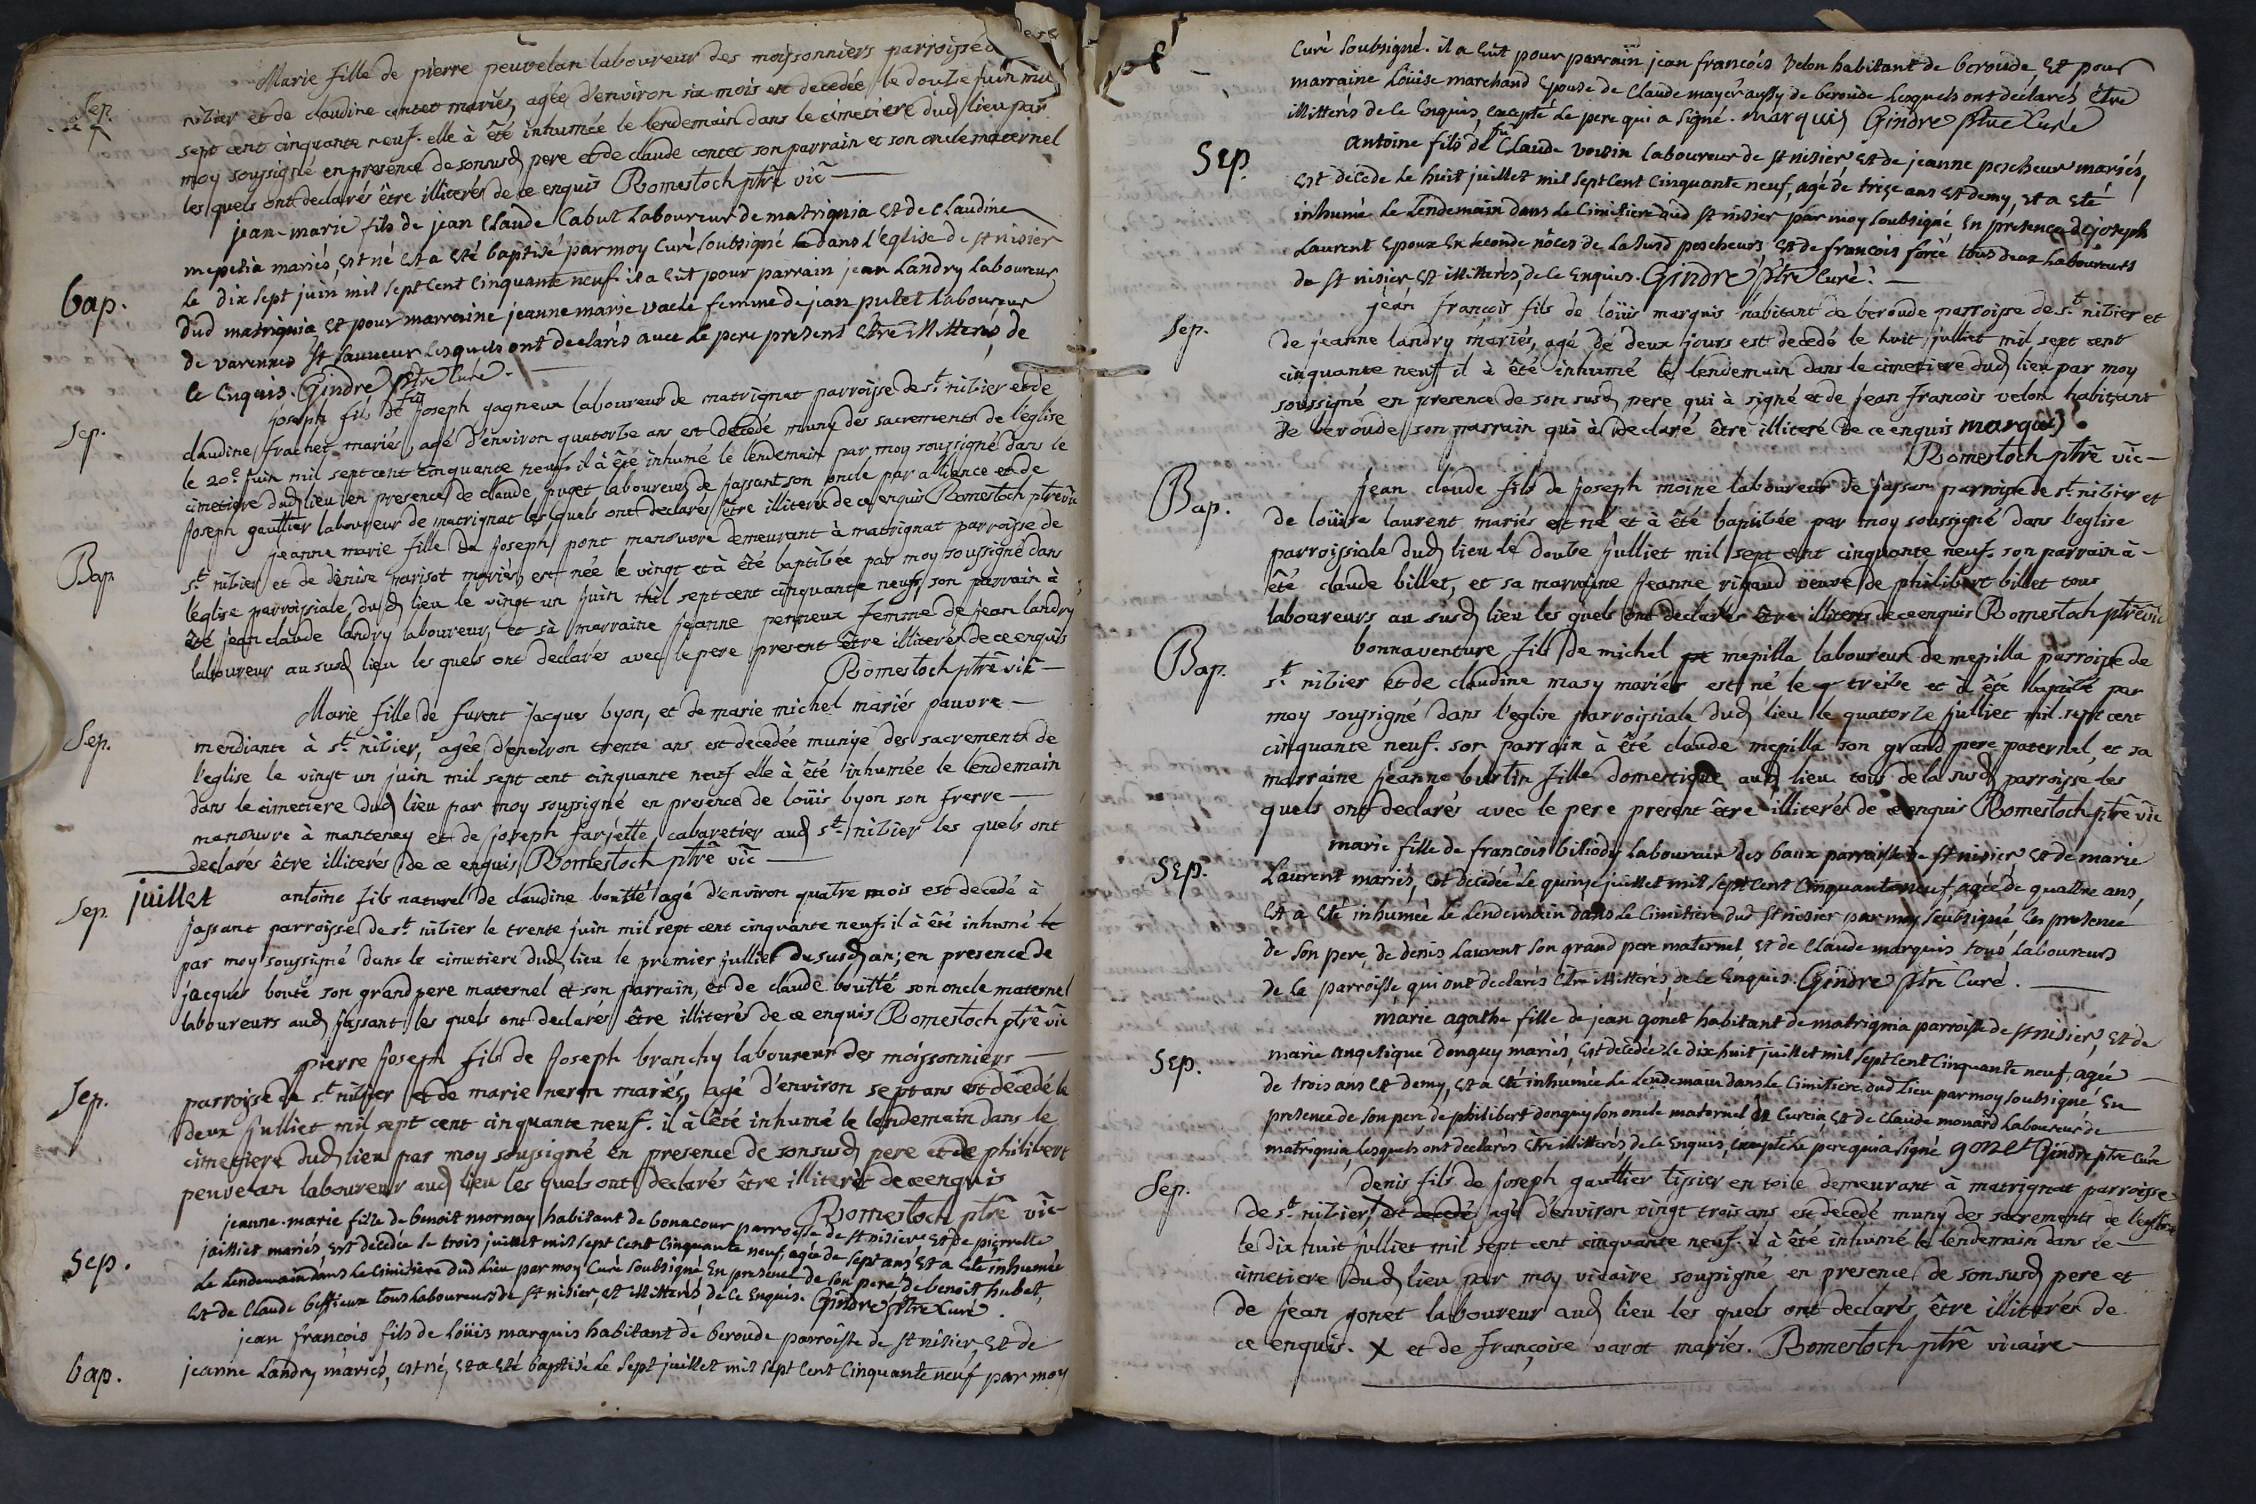 Marie fille de pierre peuvelan laboureur des moissonniers parroisse de
Sep.
nibier et de claudine contet mariés, agée d'environ six mois est decedée le douze juin mil
sept cent cinquante neuf. elle à été inhumée le lendemain dans le cimetiere dud lieu par
moy soussigné en presence de son susd pere et de claude contet son parrain et son oncle maternel
les quels ont declarés être illiterés de ce enquis Romestoch ptrê vic
jean-marie fils de jean Claude Cabut Laboureur de matrignia et de Claudine
Bap.
mepelia mariés, est né est a eté baptisé par moy Curé Soubsigné dans l'eglise de st nisier
Le dix sept juin mil Sept Cent Cinquante neuf. il a Eüt pour parrain jean Landry Laboureur
dud matrignia et pour marraine jeanne marie vacle femme de jean putet laboureur
de varennes St Sauveur Lesquels ont declarés avec le pere present être illitterés, de
Ce Enquis. Gindre Ptre Curé.
Sep.
joseph fils de fu joseph gagneux laboureur de matrignat parroisse de st nibier et de
claudine frachet mariés, agé d'environ quatorze ans est decedé muny des sacrements de l'église
le 20e juin mil sept cent cinquante neuf il à été inhumé le lendemain par moy soussigné dans le
cimetiere dud lieu en presence de claude puget laboureur de jassant son oncle par alliance et de
joseph gaultier laboureur de matrignat les quels ont declarés être illiterés de ce enquis Romestoch ptrê vic
Bap
jeanne marie fille de joseph pont manouvre demeurant à matrignat parroisse de
st nibier et de denise parisot mariés, est née le vingt et à été baptisée par moy soussigné dans
l'eglise parroissiale dud lieu le vingt un juin mil sept cent cinquante neuf, son parrain à
été jean claude landry laboureur, et sà marraine jeanne perreux femme de jean landry
laboureur au susd lieu les quels ont declarés avec le pere present être illiterés de ce enquis
Romestoch ptrê vic
Sep.
Marie fille de furent jacques byon, et de marie michel mariés pauvre
mendiante à st nibier, agée d'environ trente ans est decedée munye des sacrements de
l'eglise le vingt un juin mil sept cent cinquante neuf elle à été inhumée le lendemain
dans le cimetiere dud lieu par moy soussigné en presence de loüis byon son frerre
manouvre à manteney et de joseph farjette cabaretier aud st nibier les quels ont
declarés être illiterés de ce enquis Romestoch ptrê vic
juillet
Sep.
antoine fils naturel de claudine boutté agé d'environ quatre mois est decedé à
jassant parroisse de st nibier le trente juin mil sept cent cinquante neuf il à été inhumé
par moy soussigné dans le cimetiere dud lieu le premier julliet du susd an; en presence de
jacques bouté son grand pere maternel et son parrain, et de claude boutté son oncle maternel
laboureurs aud jassant les quels ont declarés être illiterés de ce enquis Romestoch ptrê vic
Sep.
pierre joseph fils de joseph branchy laboureur des moissonniers
parroisse de st nibier et de marie neron mariés, agé d'environ sept ans est decedé le
deux julliet mil sept cent cinquante neuf. il à été inhumé le lendemain dans le
cimetiere dud lieu par moy soussigné en presence de son susd pere et de philibert
peuvelan laboureur aud lieu les quels ont declarés être illiterés de ce enquis
Romestoch ptrê vic
Sep.
jeanne-marie fille de benoit mornay habitant de bonacour parroisse de st nisier et de pierrette
juillier mariés est decedée le trois juillet mil sept Cent Cinquante neuf, agée de sept ans est a eté inhumée
Le Lendemain dans le Cimitiere dud Lieu par moy Curé Soubsigné En presence de son pere, de benoit hubet,
est de Claude beffieux tous Laboureurs de st nisier, et illitterés, de Ce Enquis. Gindre Ptre Curé.
Bap.
jean francois fils de Loüis marquis habitant de beroude parroisse de st nisier, Et de
jeanne Landry mariés, est né, et a eté baptisé Le Sept juillet mil Sept Cent Cinquante neuf par moy
Curé Soubsigné. il a Eüt pour parrain jean francois velon habitant de beroude, Et pour
marraine Loüise marchand Epouse de Claude mayer aussy de beroude Lesquels ont declarés être
illitterés de Ce Enquis, Excepté Le pere qui a Signé. marquis Gindre Ptre Curé
Sep.
Antoine fils de fu Claude voisin laboureur de st nisier Et de jeanne pescheur mariés,
Est decede Le huit juillet mil Sept Cent Cinquante neuf, agé de treize ans Et demy, Et a Eté
inhumé Le Lendemain dans Le Cimitiere dud st nisier par moy Soubsigné En presence de joseph
Laurent Epoux En Seconde nôces de La Susd pescheurs Et de francois forêt tous deux Laboureurs
de st nisier Et illitterés, de Ce Enquis. Gindre Ptre Curé.
Sep.
jean francois fils de loüis marquis habitant de beroude parroisse de st nibier et
de jeanne landry mariés, agé de deux jours est decedé le huit julliet mil sept cent
cinquante neuf il à été inhumé le lendemain dans le cimetiere dud lieu par moy
soussigné en presence de son susd pere qui à signé et de jean francois velon habittant
de beroude son parrain qui à declaré être illiteré de ce enquis marquis
Romestoch ptrê vic
Bap.
jean claude fils de joseph moine laboureur de jassan parroisse de st nibier et
de loüise laurent mariés est né et à été baptisée par moy soussigné dans l'eglise
parroissiale dud lieu le douze julliet mil sept cent cinquante neuf. son parrain à
été claude billet, et sa marraine jeanne rigaud veuve de philibert billet tous
laboureurs au susd lieu les quels ont declarés être illiterés de ce enquis Romestoch ptrê vic
Bap.
bonnaventure fils de michel mepilla laboureur de mepilla parroisse de
st nibier et de claudine masy mariés est né le treize et à été baptisé par
moy soussigné dans l'eglise parroissiale dud lieu le quatorze julliet mil sept cent
cinquante neuf. son parrain à été claude mepilla son grand pere paternel, et sa
marraine jeanne burtin fille domestique aud lieu tous de la susd parroisse les
quels ont declarés avec le pere present être illiterés de ce enquis Romestoch ptrê vic
Sep.
marie fille de francois biliody Laboureur des baux parroisse de st nisier Et de marie
Laurent mariés, Est decedée Le quinze juillet mil Sept Cent Cinquante neuf, agée de quattre ans,
Est à Eté inhumée Le Lendemain dans Le Cimitiere dud st nisier par moy Soubsigné En presence
de Son pere, de denis Laurent Son grand pere maternel, Et de Claude marquis tous Laboureurs
de La parroisse qui ont declarés être illitterés, de Ce Enquis. Gindre Ptre Curé.
Sep.
marie agathe fille de jean gonet habitant de matrignia parroisse de st nisier, Et de
marie angelique donguy mariés, Est decedée Le dix huit juillet mil Sept Cent Cinquante neuf, agée
de trois ans Et demy, Et a Eté inhumée Le Lendemain dans Le Cimitiere dud Lieu par moy Soubsigné En
presence de Son pere, de philibert donguy Son oncle maternel de Curcia, Et de Claude monard Laboureur de
matrignia, Lesquels ont declarés être illitterés, de Ce Enquis, Excepté Le pere qui a Signé gonet Gindre ptre Curé
Sep.
denis fils de joseph gaultier tissier en toile demeurant à matrignat parroisse
de st nibier X est decedé, agé d'environ vingt trois ans est decedé muny des sacrements de l'eglise
le dix huit julliet mil sept cent cinquante neuf. il à été inhumé le lendemain dans le
cimetiere dud lieu par moy vicaire soussigné en presence de son susd pere et
de jean gonet laboureur aud lieu les quels ont declarés être illiterés de
ce enquis. X et de françoise varot mariés. Romestoch ptrê vicaire